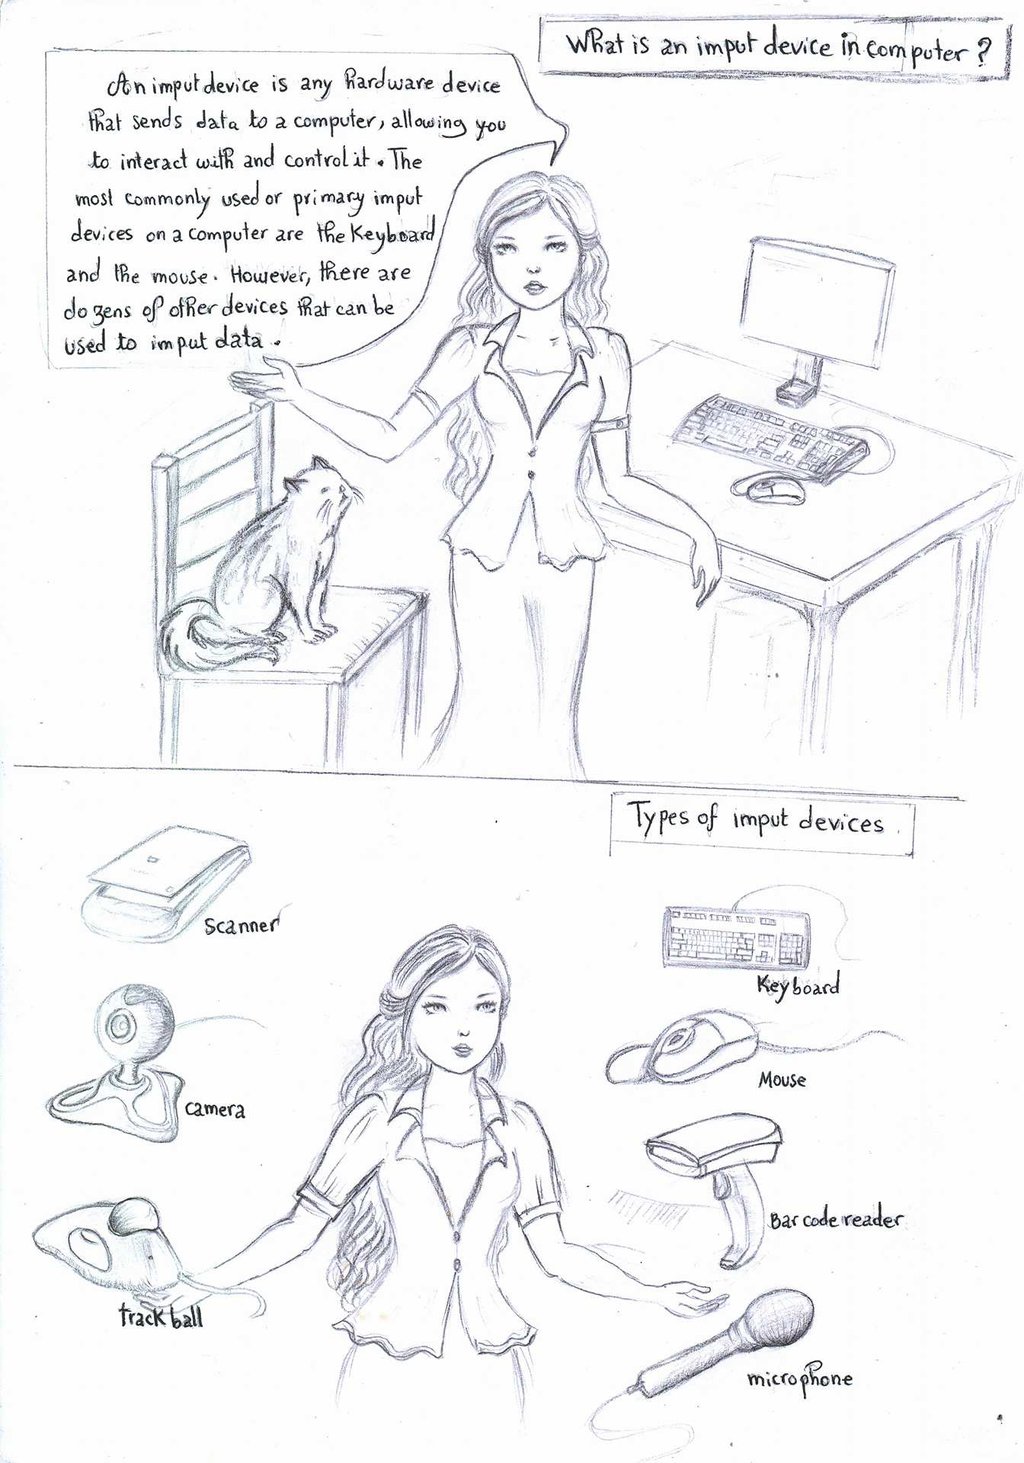 What is an imput device in computer ?
An imput device is any hardware device
that sends data to a computer, allowing you
to interact with and control it. The
most commonly used or primary imput
devices on a computer are the Keyboard
and the mouse. However, there are
dozens of other devices that can be
used to imput data.
Types of imput devices.
Scanner
Keyboard
camera
Mouse
track ball
Bar code reader
microphone